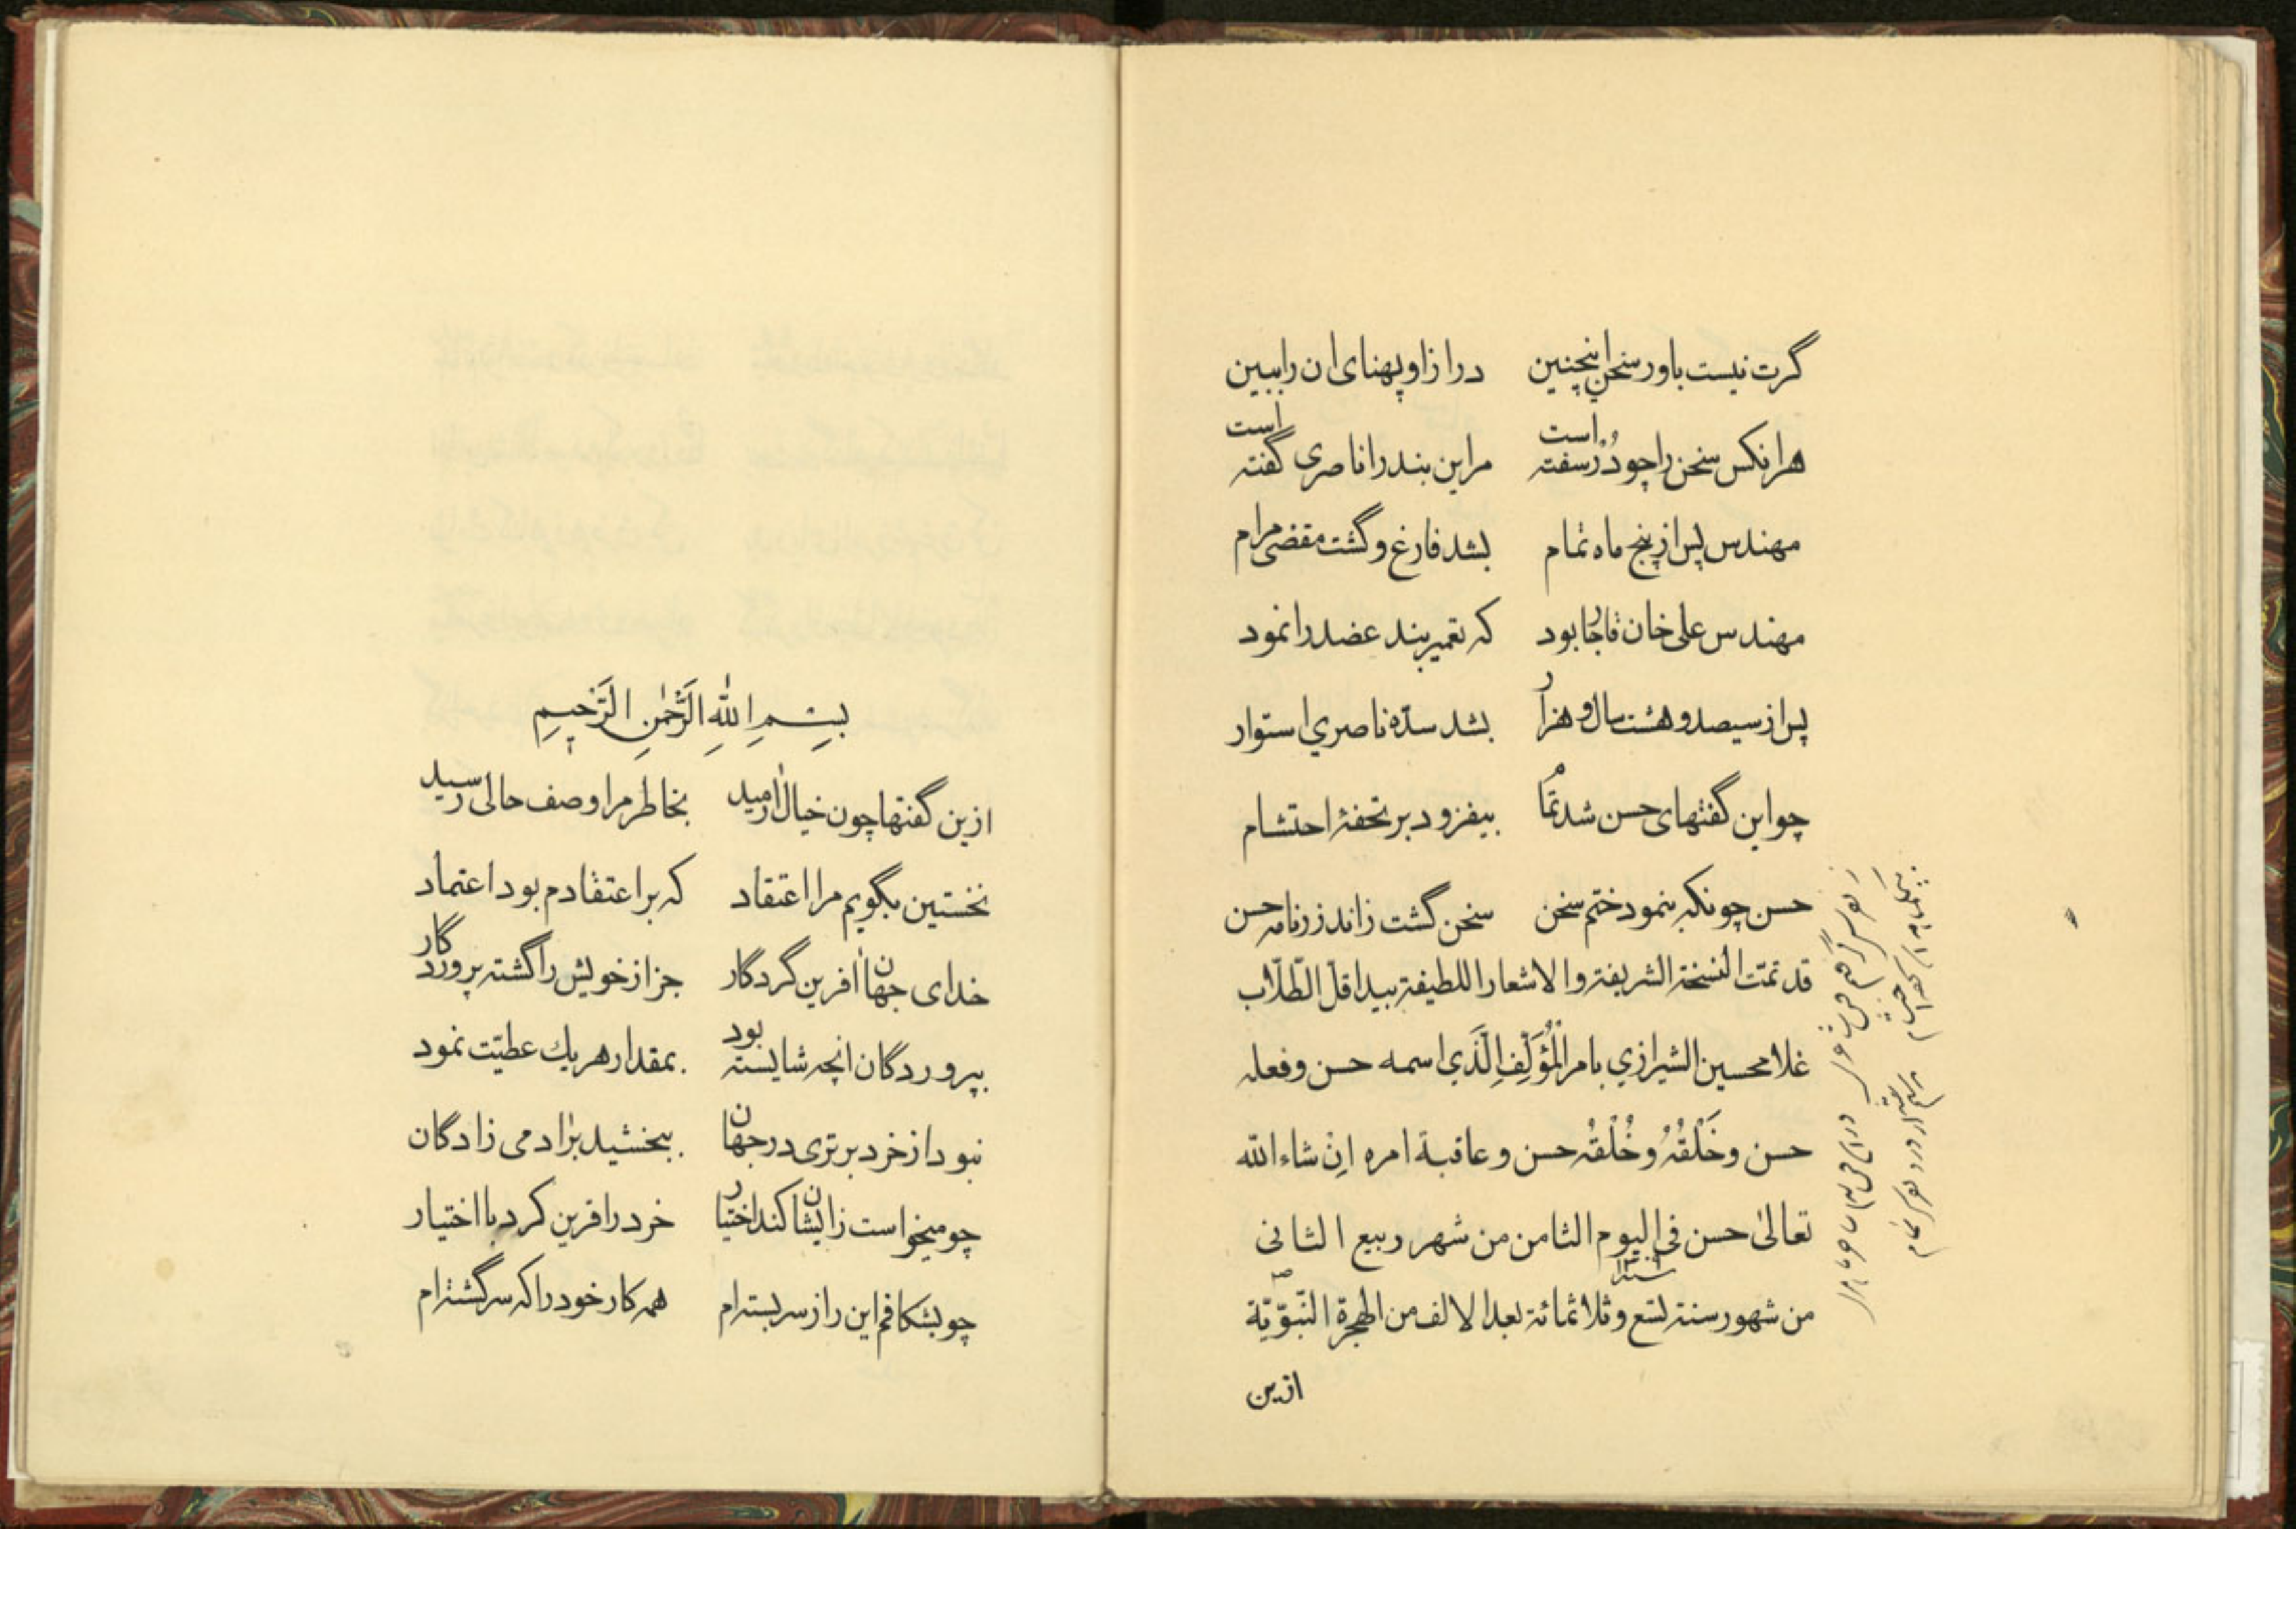 گرت نیست باور سخن اینچنین درازا و پهنای ان را ببین
هرانکس سخن را چو دُرّ سفته است مر این بند را ناصری گفته است
مهندس پس از پنج ماه تمام بشد فارغ و گشت مقضی مرام
مهندس علی خان قاجار بود که تعمیر بند عضد را نمود
پس از سیصد و هشت سال و هزار بشد سدّه ناصري استوار
چو این گفتهای حسن شد تمام بیفزود بر تحفهٔ احتشام
حسن چونکه بنمود ختم سخن سخن گشت زاندرزنامه حسن
قد تمّت النسخة الشریفة و الاشعار اللطیفة بید اقلّ الطّلّاب
غلامحسین الشیرازي بامر الْمُؤَلِّفِ الَّذَي اسمه حسن و فعله
حسن و خَلْقُهُ وَ خُلْقُهُ حسن و عاقبة امره اِنْ شاء الله
تعالیٰ حسن فی الیوم الثامن من شهر ربیع الثانی
من شهور سنة تسع و ثلاثمائة بعد الالف من الهجرة النّبوّیّة ص
سنه ١٣٠٩
ازین
بِسْمِ اللّٰهِ الرَّحْمٰنِ الرَّحیمِ
ازین گفتها چون خیال ارمید بخاطر مرا وصف حالی رسید
نخستین بگویم مرا اعتقاد که بر اعتقادم بود اعتماد
خدای جهان افرین گردگار جز از خویش را گشته پروردگار
بپروردگان انچه شایسته بود بمقدار هر یك عطیّت نمود
نبود از خرد برتری در جهان ببخشید بر ادمی زادگان
چو میخواست زایشان کند اختیار خرد را فرین کرد با اختیار
چو بشکافم این راز سربسته‌ام همه کار خود را که سرگشته‌ام